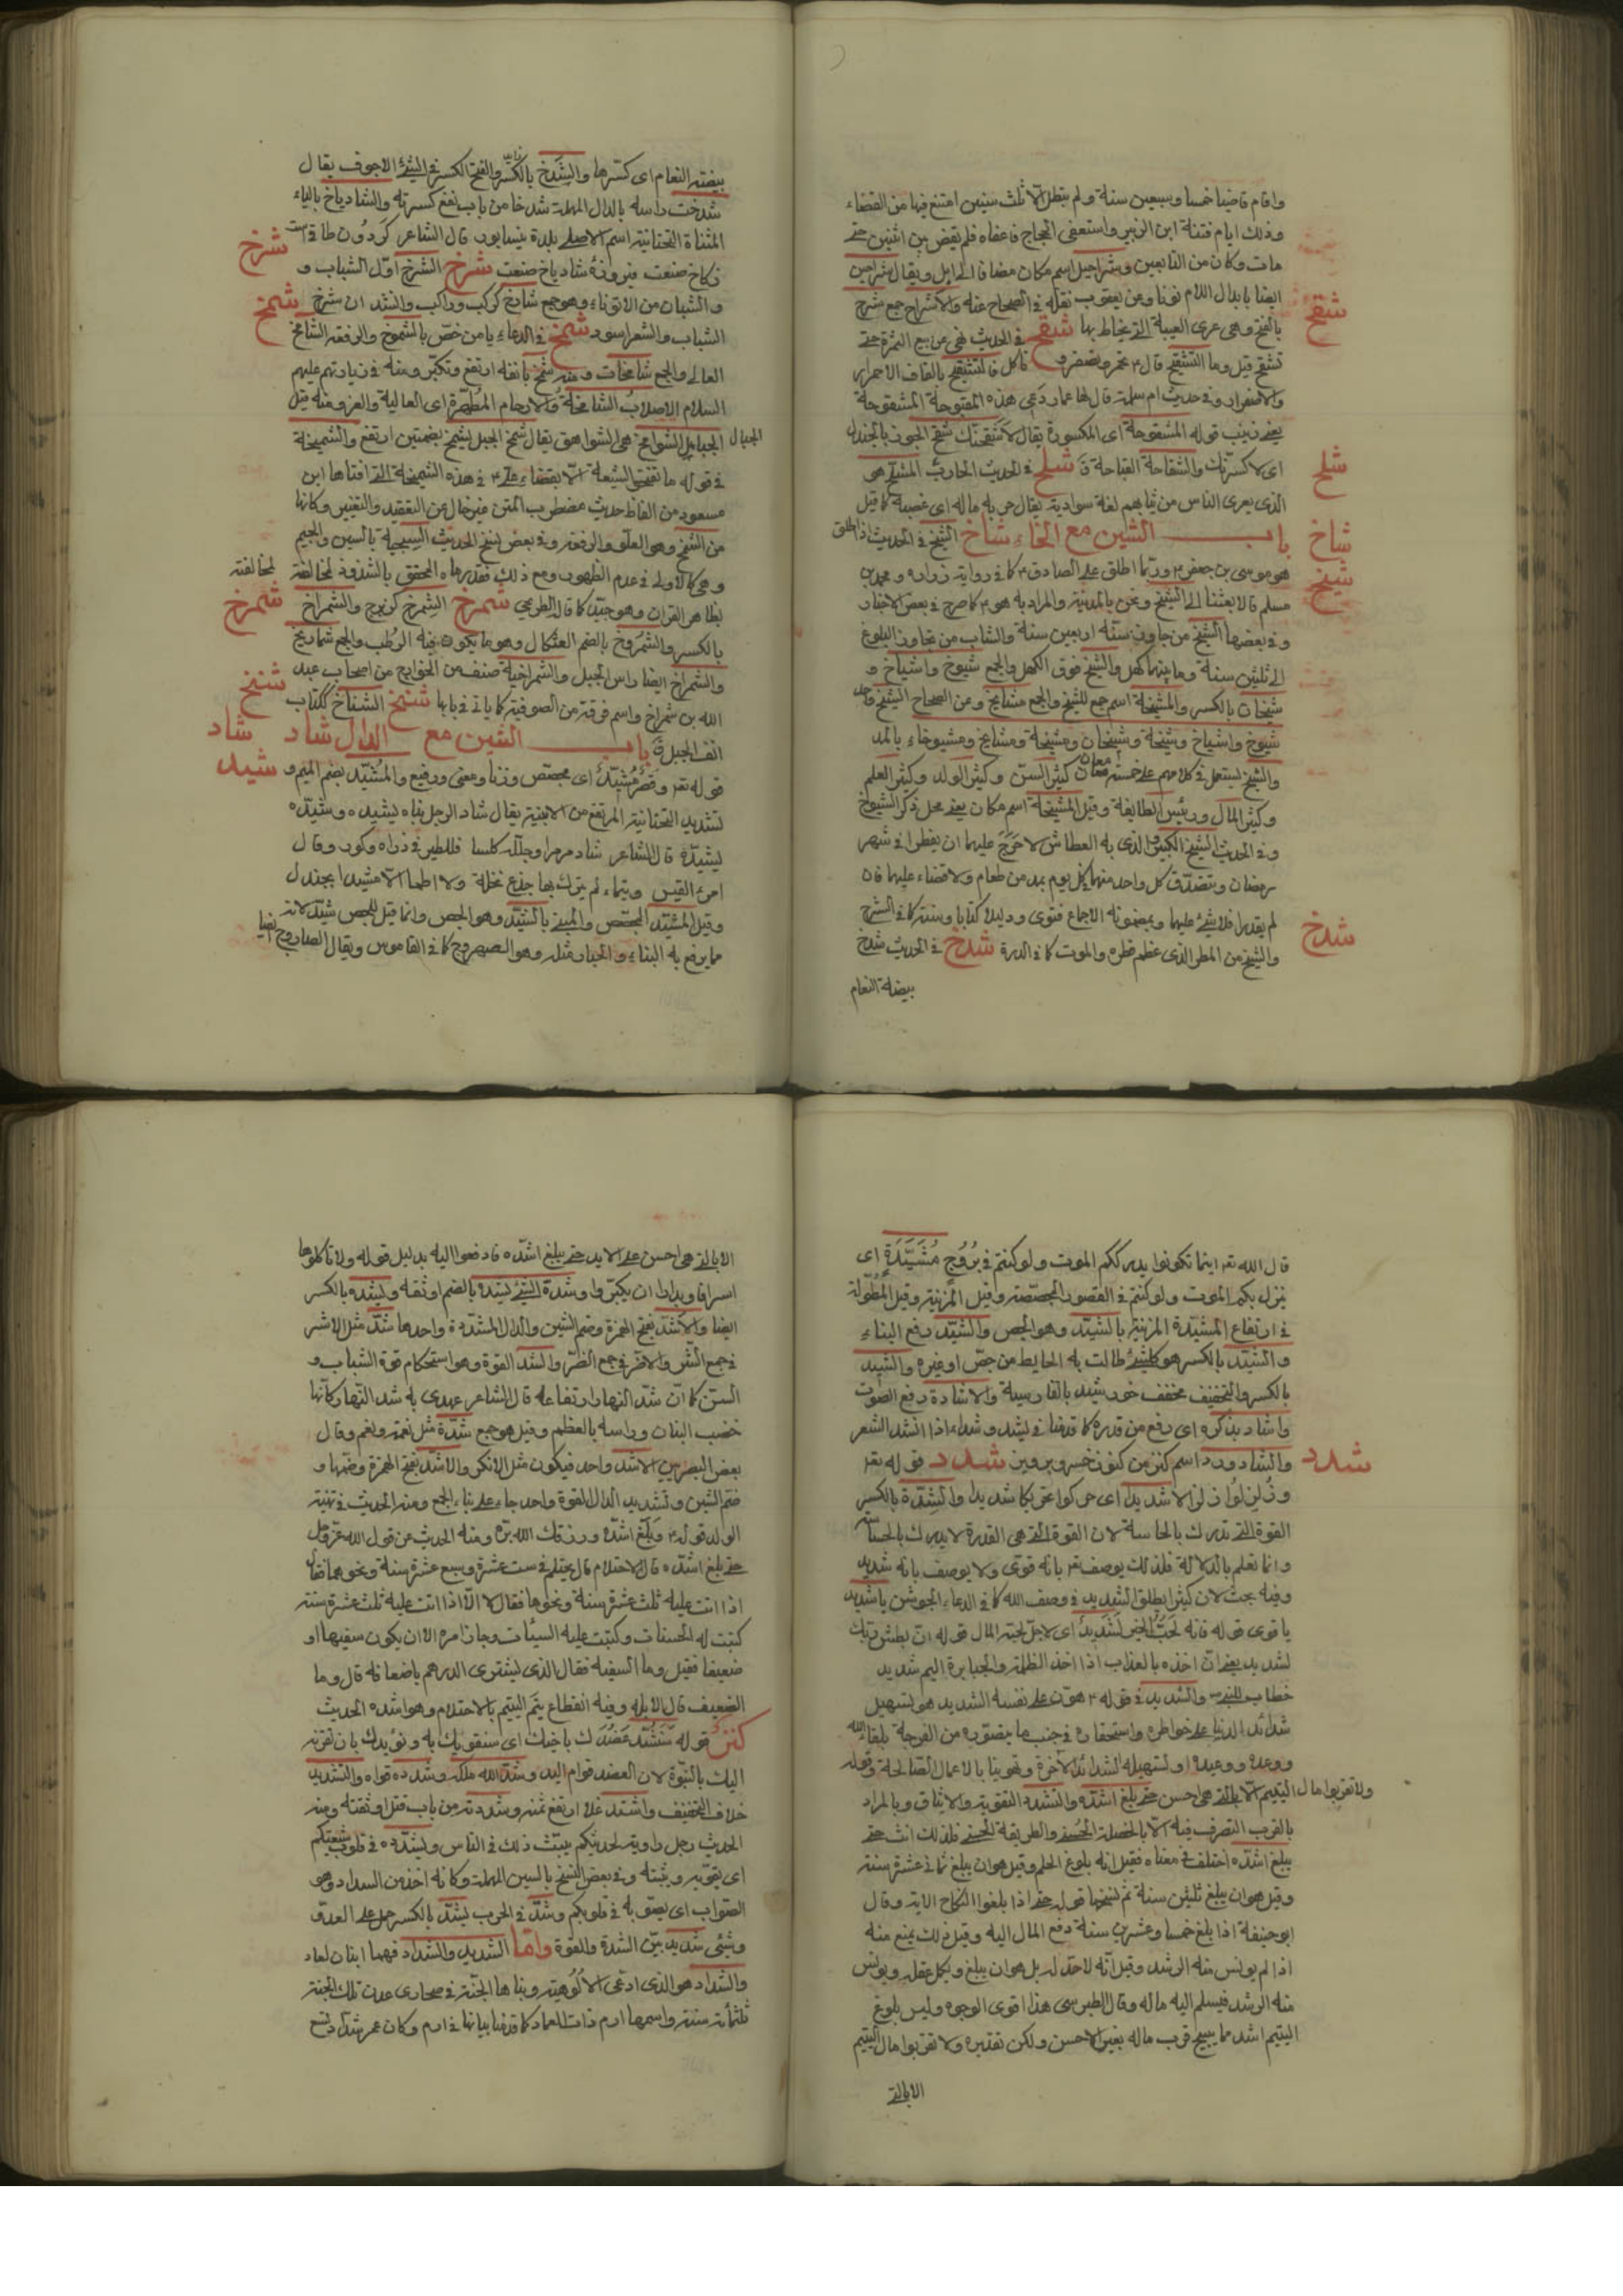 واقام قاضيا خمسا وسبعين سنة ولم يتعطل الا ثلث سنين امتنع فيها من القضاء
وذلك ايام فتنة ابن الزبير واستعفى الحجاج فاعفاه فلم يقض بين اثنين حتى
مات وكان من التابعين وشراحيل اسم مكان مضاف الى ابل ويقال شراحين
ايضا بابدال اللام نونا وعن يعقوب نقله في الصحاح عنه والاشراج جمع شرج
بالفتح وهي عرى العيبة التي يخاط بها شقح في الحديث نهى عن بيع التمرة حتى
شقح
تشقح قيل وما التشقيح قال تحمر وتصفر و تاكل فالتشقيح بالقاف الاحمرار
والاصفرار وفي حديث ام سلمة قال لها عمار دعى هذه المقبوحة المشقوحة
يعني زينب قوله المشقوحة اى المكسورة يقال لاشقحنك شقح الجوز بالجندل
اى لاكسرنك والشقاحة القباحة شلح في الحديث الحارب المشلح هى
شلح
الذى يعرى الناس من ثيابهم لغة سوادية يقال حربه ماله اى غصبه كما قيل
باب الشين مع الخاء شاخ الشيخ في الحديث اذا اطلق
شاخ
هو موسى بن جعفر وربما اطلق على الصادق كما في رواية زراره ومحمد بن
شيخ
مسلم قالا بعثنا الى الشيخ ونحن بالمدينة والمراد به هو كما صرح في بعض الاخبار
وفي بعضها الشيخ من جاوز سنه اربعين سنة والشاب من تجاوز البلوغ
الى ثلثين سنة وما بينهما كهل والشيخ فوق الكهل والجمع شيوخ واشياخ و
شيخات بالكسر والمشيخة اسم جمع للشيخ والجمع مشايخ وعن الصحاح الشيخ واحد
شيوخ واشياخ وشيخة وشيخان ومشيخة ومشايخ ومشيوخاء بالمد
والشيخ يستعمل في كلامهم على خمسة معان كبير السن وكبير الولد وكبير العلم
وكبير المال ورئيس الطايفة وقيل المشيخة اسم مكان يعنى محل ذكر الشيوخ
وفي الحديث الشيخ الكبير والذى به العطاش لا حرج عليهما ان يفطرا في شهر
رمضان ويتصدق كل واحد منهما كل يوم بمد من طعام ولا قضاء عليهما فان
لم يقدرا فلا شئ عليهما وبمضمونه الاجماع فتوى ودليلا كتابا وسنة كما في الشرح
والشيخ من المطر الذى عظم قطره والموت كما في الدرة شدخ في الحديث شدخ
شدخ
بيضة النعام
بيضة النعام اى كسرها والشدخ بالكسر والفتح الكسر في الشئ الاجوف يقال
شدخت راسه بالدال المهملة شدخا من باب نفع كسرته والشادياخ بالياء
المثناة التحتانية اسم الاصلي بلدة نيسابور قال الشاعر كردون طاقات
زكاخ صنعت فيروزه شادياخ صنعت شرخ الشرخ اول الشباب و
شرخ
والشبان من الاتوناء وهو جمع شارخ كركب وراكب وانشد ان شرخ
الشباب والشعر اسود شمخ في الدعاء يا من خص بالشموخ والرفعه الشامخ
شمخ
العالى والجمع شامخات ومنه شمخ بانفه ارتفع وتكبر ومنه في زيارتهم عليهم
السلام الاصلاب الشامخة والارحام المطهرة اى العالية والعز ومنه قيل
الجبال الشوامخ هى الشواهق يقال شمخ الجبل يشمخ بضمتين ارتفع والشميخة
الجبال
في قوله ما تفتخر الشيعة الا بقضاء على في هذه الشميخة التي افتاها ابن
مسعود من الفاظ حديث مضطرب المتن غير خال من التعقيد والتغيير وكانها
من الشمخ وهو العلو والرفعة وفي بعض نسخ الحديث السيجية بالسين والجيم
وهى كالاولى في عدم الظهور ومع ذلك فقد رماه المحقق بالشذوذ لمخالفته
لمخالفته
لظاهر القران وهو جيد كما قال الطريحى شمرخ الشمرخ كزبرج والشمراخ
شمرخ
بالكسر والشمروخ بالضم العثكال وهو ما يكون فيه الرطب والجمع شماريخ
والشمراخ ايضا راس الجبل والشمراخية صنف من الخوارج من اصحاب عبد
الله بن شمراخ واسم فرقة من الصوفية كما ياتي في بابها شنخ الشناخ ككتاب
شنخ
انف الجبل باب الشين مع الدال شاد
شاد
قوله تعـ وقصر مشيد اى مجصص وزنا ومعنى ورفيع والمشيد بضم الميم و
شيد
تشديد التحتانية المرتفع من الابنية يقال شاد الرجل بناه يشيده وشيده
يشيده قال الشاعر شاده مرمرا وجلله كلسا فللطير في ذراه وكور وقال
امرء القيس وتيماء لم يترك بها جذع نخلة ولا اطما الا مشيدا بجندل
وقيل المشيد المجصص والمبني بالشيد وهو الجص وانما قيل للجص شيد لانه
مما يرفع به البناء والجيار مثله وهو الصهروج كما في القاموس ويقال الصاروج ايضا
قال الله تعـ اينما تكونوا يدرككم الموت ولو كنتم في بروج مشيدة اى
ينزل بكم الموت ولو كنتم في القصور المجصصة وقيل المزينة وقيل المطولة
في ارتفاع المشيدة المزينة بالشيد وهو الجص والشيد رفع البناء
والشيد بالكسر هو كل شئ طالت به الحايط من جص او غيره والشيد
بالكسر والتخفيف مخفف خورشيد بالفارسية والاشادة رفع الصوت
واشاد بذكره اى رفع من قدره كما قدمنا في لشد وشداء اذا انشد الشعر
والشادورد اسم كنز من كنوز خسرو پرويز شدد قوله تعـ
شدد
وزلزلوا زلزالا شديدا اى حركوا تحريكا شديدا والشدة بالكسر
القوة التي تدرك بالحاسة لان القوة التي هى القدرة لا يدرك بالحاسة
وانما تعلم بالدلالة فلذلك يوصف تعـ بانه قوى ولا يوصف بانه شديد
وفيه بحث لان كثيرا يطلق الشديد في وصف الله كما في الدعاء الجوشن يا شديد
يا قوى قوله فانه لحب الخير لشديد اى لاجل لحب المال قوله ان بطش ربك
لشديد يعني ان اخذه بالعذاب اذا اخذ الظلمة والجبابرة اليم شديد
خطاب للنبي والشديد في قوله هون على نفسه الشديد هو تسهيل
شدائد الدنيا على خواطره واستحقاره في جنب ما يتصوره من الفرحة بلقاء الله
ووعده ووعيده او تسهيله لشدائد الآخرة وتهوينا بالاعمال الصالحة وقوله
ولا تقربوا مال اليتيم الا بالتي هى احسن حتى يبلغ اشده والتشدد التقوية والايثاق وبالمراد
بالقرب التصرف فيه الا بالخصلة الحسنى والطريقة الحسنى فلذلك انث حتى
يبلغ اشده اختلف في معناه فقيل انه بلوغ الحلم وقيل هو ان يبلغ ثمانى عشرة سنة
وقيل هو ان يبلغ ثلثين سنة ثم نسخها قوله حتى اذا بلغوا النكاح الاية وقال
ابو حنيفة اذا بلغ خمسا وعشرين سنة دفع المال اليه وقيل ذلك يمنع منه
اذا لم يونس منه الرشد وقيل انه لاحد له بل هو ان يبلغ ويكمل عقله ويونس
منه الرشد فيسلم اليه ماله وقال الطبرسى هذا اقوى الوجوه وليس بلوغ
اليتيم اشد مما يبيح قرب ماله بغير الاحسن ولكن تقديره ولا تقربوا مال اليتيم
الا بالتي
الا بالتي هى احسن على الابد حتى يبلغ اشده فادفعوا اليه بدليل قوله ولا تاكلوها
اسرافا وبدارا ان يكبروا وشدة الشئ يشده بالضم اوثقه ويشده بالكسر
ايضا والاشد بفتح الهمزة وضم الشين والدال المشددة واحدها شد مثل الاشر
في جمع الشر والاضر في جمع الضر والشد القوة وهو استحكام قوة الشباب و
السن كما ان شد النهار ارتفاعه قال الشاعر عهدى به شد النهار كانما
خضب البنان وراسه بالعظلم وقيل هو جمع شدة مثل نعمة وانعم وقال
بعض البصريين الاشد واحد فيكون مثل الانك والاشد بفتح الهمزة وضمها و
ضم الشين وتشديد الدال القوة واحد جاء على بناء الجمع ومنه الحديث في تهنية
الولد قوله وبلغ اشده ورزقك الله بره ومنه الحديث عن قول الله عز وجل
حتى يبلغ اشده قال الاحتلام قال يحتلم في ست عشرة وسبع عشرة سنة ونحوهما فقال
اذا اتت عليه ثلث عشرة سنة ونحوها فقال لا الا اذا اتت عليه ثلث عشرة سنة
كتبت له الحسنات وكتبت عليه السيئات وجاز امره الا ان يكون سفيها او
ضعيفا فقيل وما السفيه فقال الذى يشترى الدرهم باضعافه قال وما
الضعيف قال الابله وفيه انقطاع يتم اليتيم بالاحتلام وهو اشده الحديث
كنز قوله سنشد عضدك باخيك اى سنقويك به ونؤيدك بان نقرنه
اليك بالنبوة لان العضد قوام اليد وشد الله ملكه وشدده قواه والتشديد
خلاف التخفيف واشتد غلا ارتفع ثمنه وشددته من باب قتل اوثقته ومنه
الحديث رجل راوية لحديثكم يبث ذلك في الناس ويشدده في قلوب شيعتكم
اى يقويه ويثبته وفي بعض النسخ بالسين المهملة وكانه اخذ من السداد وهو
الصواب اى يصوبه في قلوبكم وشد في الحرب يشد بالكسر حمل على العدو
وشئى شديد بين الشدة والقوة واما الشديد والشداد فهما ابنان لعاد
والشداد هو الذى ادعى الالوهية وبناها الجنة في صحارى عدن تلك الجنة
ثلثماة سنة واسمها ارم ذات العماد كما قدمنا بيانها في ارم وكان عمر شداد تسع